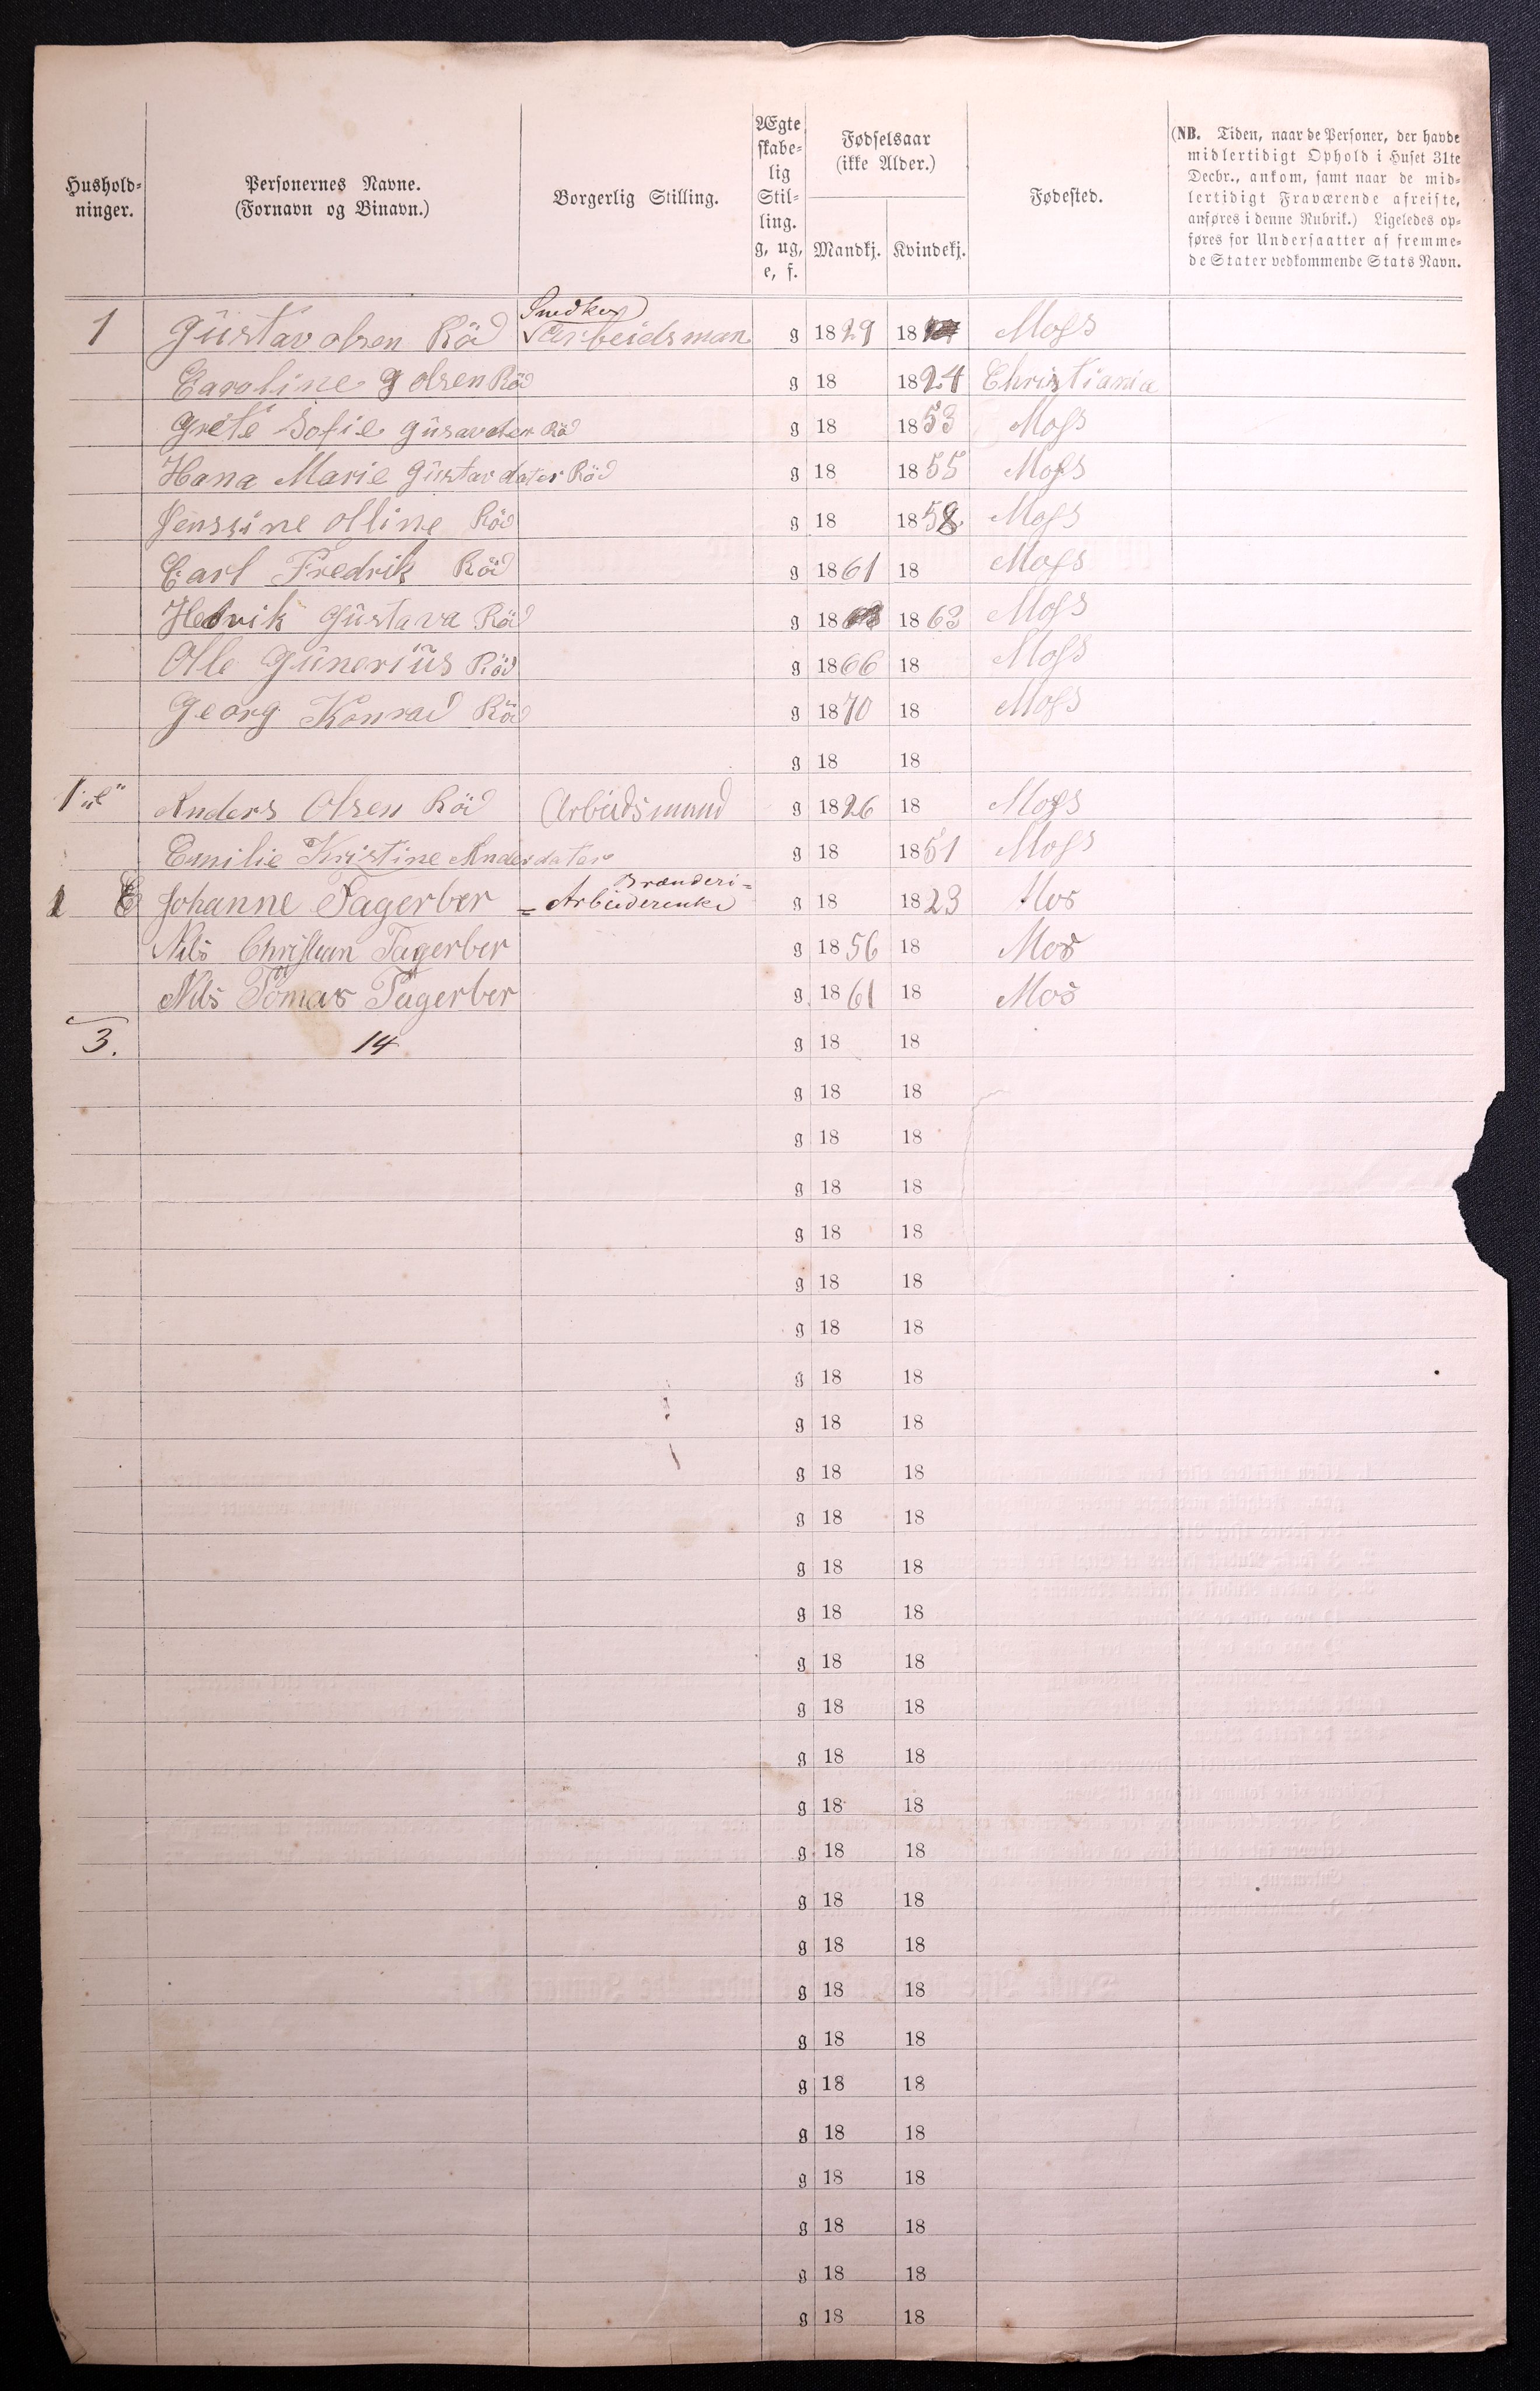 Hushold-
ninger.
Personernes Navne.
(Fornavn og Binavn.)
Borgerlig Stilling.
Ægte
skabe-
lig
Stil-
ling.
g, ug,
e, f.
Fødselsaar
(ikke Alder.)
Mandkj. Kvindekj.
Fødested.
(NB. Tiden, naar de Personer, der havde
midlertidigt Ophold i Huset 31te
Decbr., ankom, samt naar de mid-
lertidigt Fraværende afreiste,
anføres i denne Rubrik.) Ligeledes op-
føres for Undersaatter af fremme-
de Stater vedkommende Stats Navn.
Snedker
1 Güstav olsen Röd Arbeidsman g 1829 18 Moss
Caroline G olsen Röd g 18 1824 Christiania
Grete Sofie güsavdter Röd g 18 1853 Moss
Hana Marie Güstavdater Röd g 18 1855 Moss
Jenssine olline Röd g 18 1858 Moss
Carl Fredrik Röd g 1861 18 Moss
Hedvik Güstava Röd g 18 1863 Moss
Olle Günerius Röd g 1866 18 Moss
Georg Konrad Röd g 1870 18 Moss
g 18 18
1 "e" Anders Olsen Röd Arbeidsmand g 1826 18 Moss
Emilie Kristine Andersdater g 18 1851 Moss
Brænderi=
1 E Johanne Fagerber = Arbeiderenke g 18 1823 Mos
Nils Christian Fagerber g 1856 18 Mos
Nils Tomas Fagerber g. 1861 18 Mos
3. 14 g 18 18
g 18 18
g 18 18
g 18 18
g 18 18
g 18 18
g 18 18
g 18 18
g 18 18
g 18 18
g 18 18
g 18 18
g 18 18
g 18 18
g 18 18
g 18 18
g 18 18
g 18 18
g 18 18
g 18 18
g 18 18
g 18 18
g 18 18
g 18 18
g 18 18
g 18 18
g 18 18
g 18 18